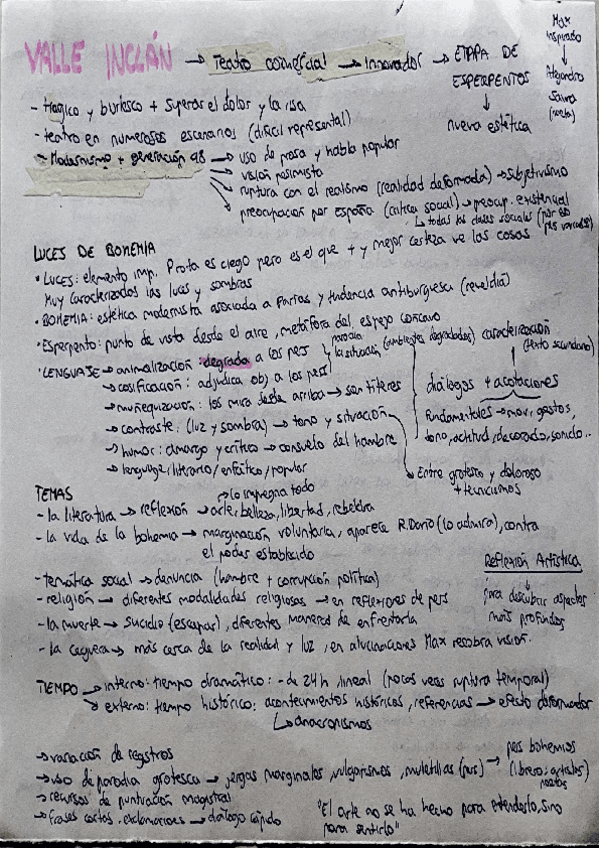 VALLE INCLÁN → Teatro comercial → Innovador → ETAPA DE ESPERPENTOS → nueva estética
Max inspirado → Alejandro Sawa (poeta)
- trágico y burlesco + superar el dolor y la risa
- teatro en numerosos escenarios (difícil representar)
- Modernismo + generación 98 → uso de prosa y habla popular
→ visión pesimista
→ ruptura con el realismo (realidad deformada) → subjetivismo
→ preocupación por España (crítica social) → preocup. existencial
↳ todas las clases sociales (por eso pjs variados)
LUCES DE BOHEMIA
· LUCES: elemento imp. Prota es ciego pero es el que + y mejor certeza ve las cosas
Muy caracterizados las luces y sombras
· BOHEMIA: estética modernista asociada a Parías y tendencia antiburguesa (reveldía)
· Esperpento: punto de vista desde el aire, metáfora del espejo cóncavo
· LENGUAJE → animalización: degrada a los pers
→ cosificación: adjudica obj a los pers
→ muñequización: los mira desde arriba → son títeres
→ contraste: (luz y sombra) → tono y situación
→ humor: amargo y crítico → consuelo del hombre
→ lenguaje literario/enfático/popular
parodia la situación (ambientes degradados)
caracterización (texto secundario)
diálogos + acotaciones
Fundamentales → mov, gestos,
tono, actitud, decorado, sonido..
→ Entre grotesco y doloroso
+ tecnicismos
TEMAS
→ lo impregna todo
- la literatura → reflexión → arte, belleza, libertad, rebeldía
- la vida de la bohemia → marginación voluntaria, aparece R. Darío (lo admira), contra
el poder establecido
- temática social → denuncia (hambre + corrupción política)
- religión → diferentes modalidades religiosas → en reflexiones de pers
- la muerte → suicidio (escapar), diferentes maneras de enfrentarla
- la ceguera → más cerca de la realidad y luz, en alucinaciones Max recobra visión
Reflexión Artística
↓
para descubrir aspectos
más profundos
TIEMPO → interno: tiempo dramático: - de 24h, lineal (pocas veces ruptura temporal)
→ externo: tiempo histórico: acontecimientos históricos, referencias → efecto deformador
↳ anacronismos
→ variación de registros
→ uso de parodia grotesca → jergas marginales, vulgarismos, muletillas → pers bohemios
(libreros, artistas)
poetas
→ recursos de puntuación magistral
→ frases cortas, exclamaciones → diálogo rápido
"El arte no se ha hecho para entenderlo, sino
para sentirlo"